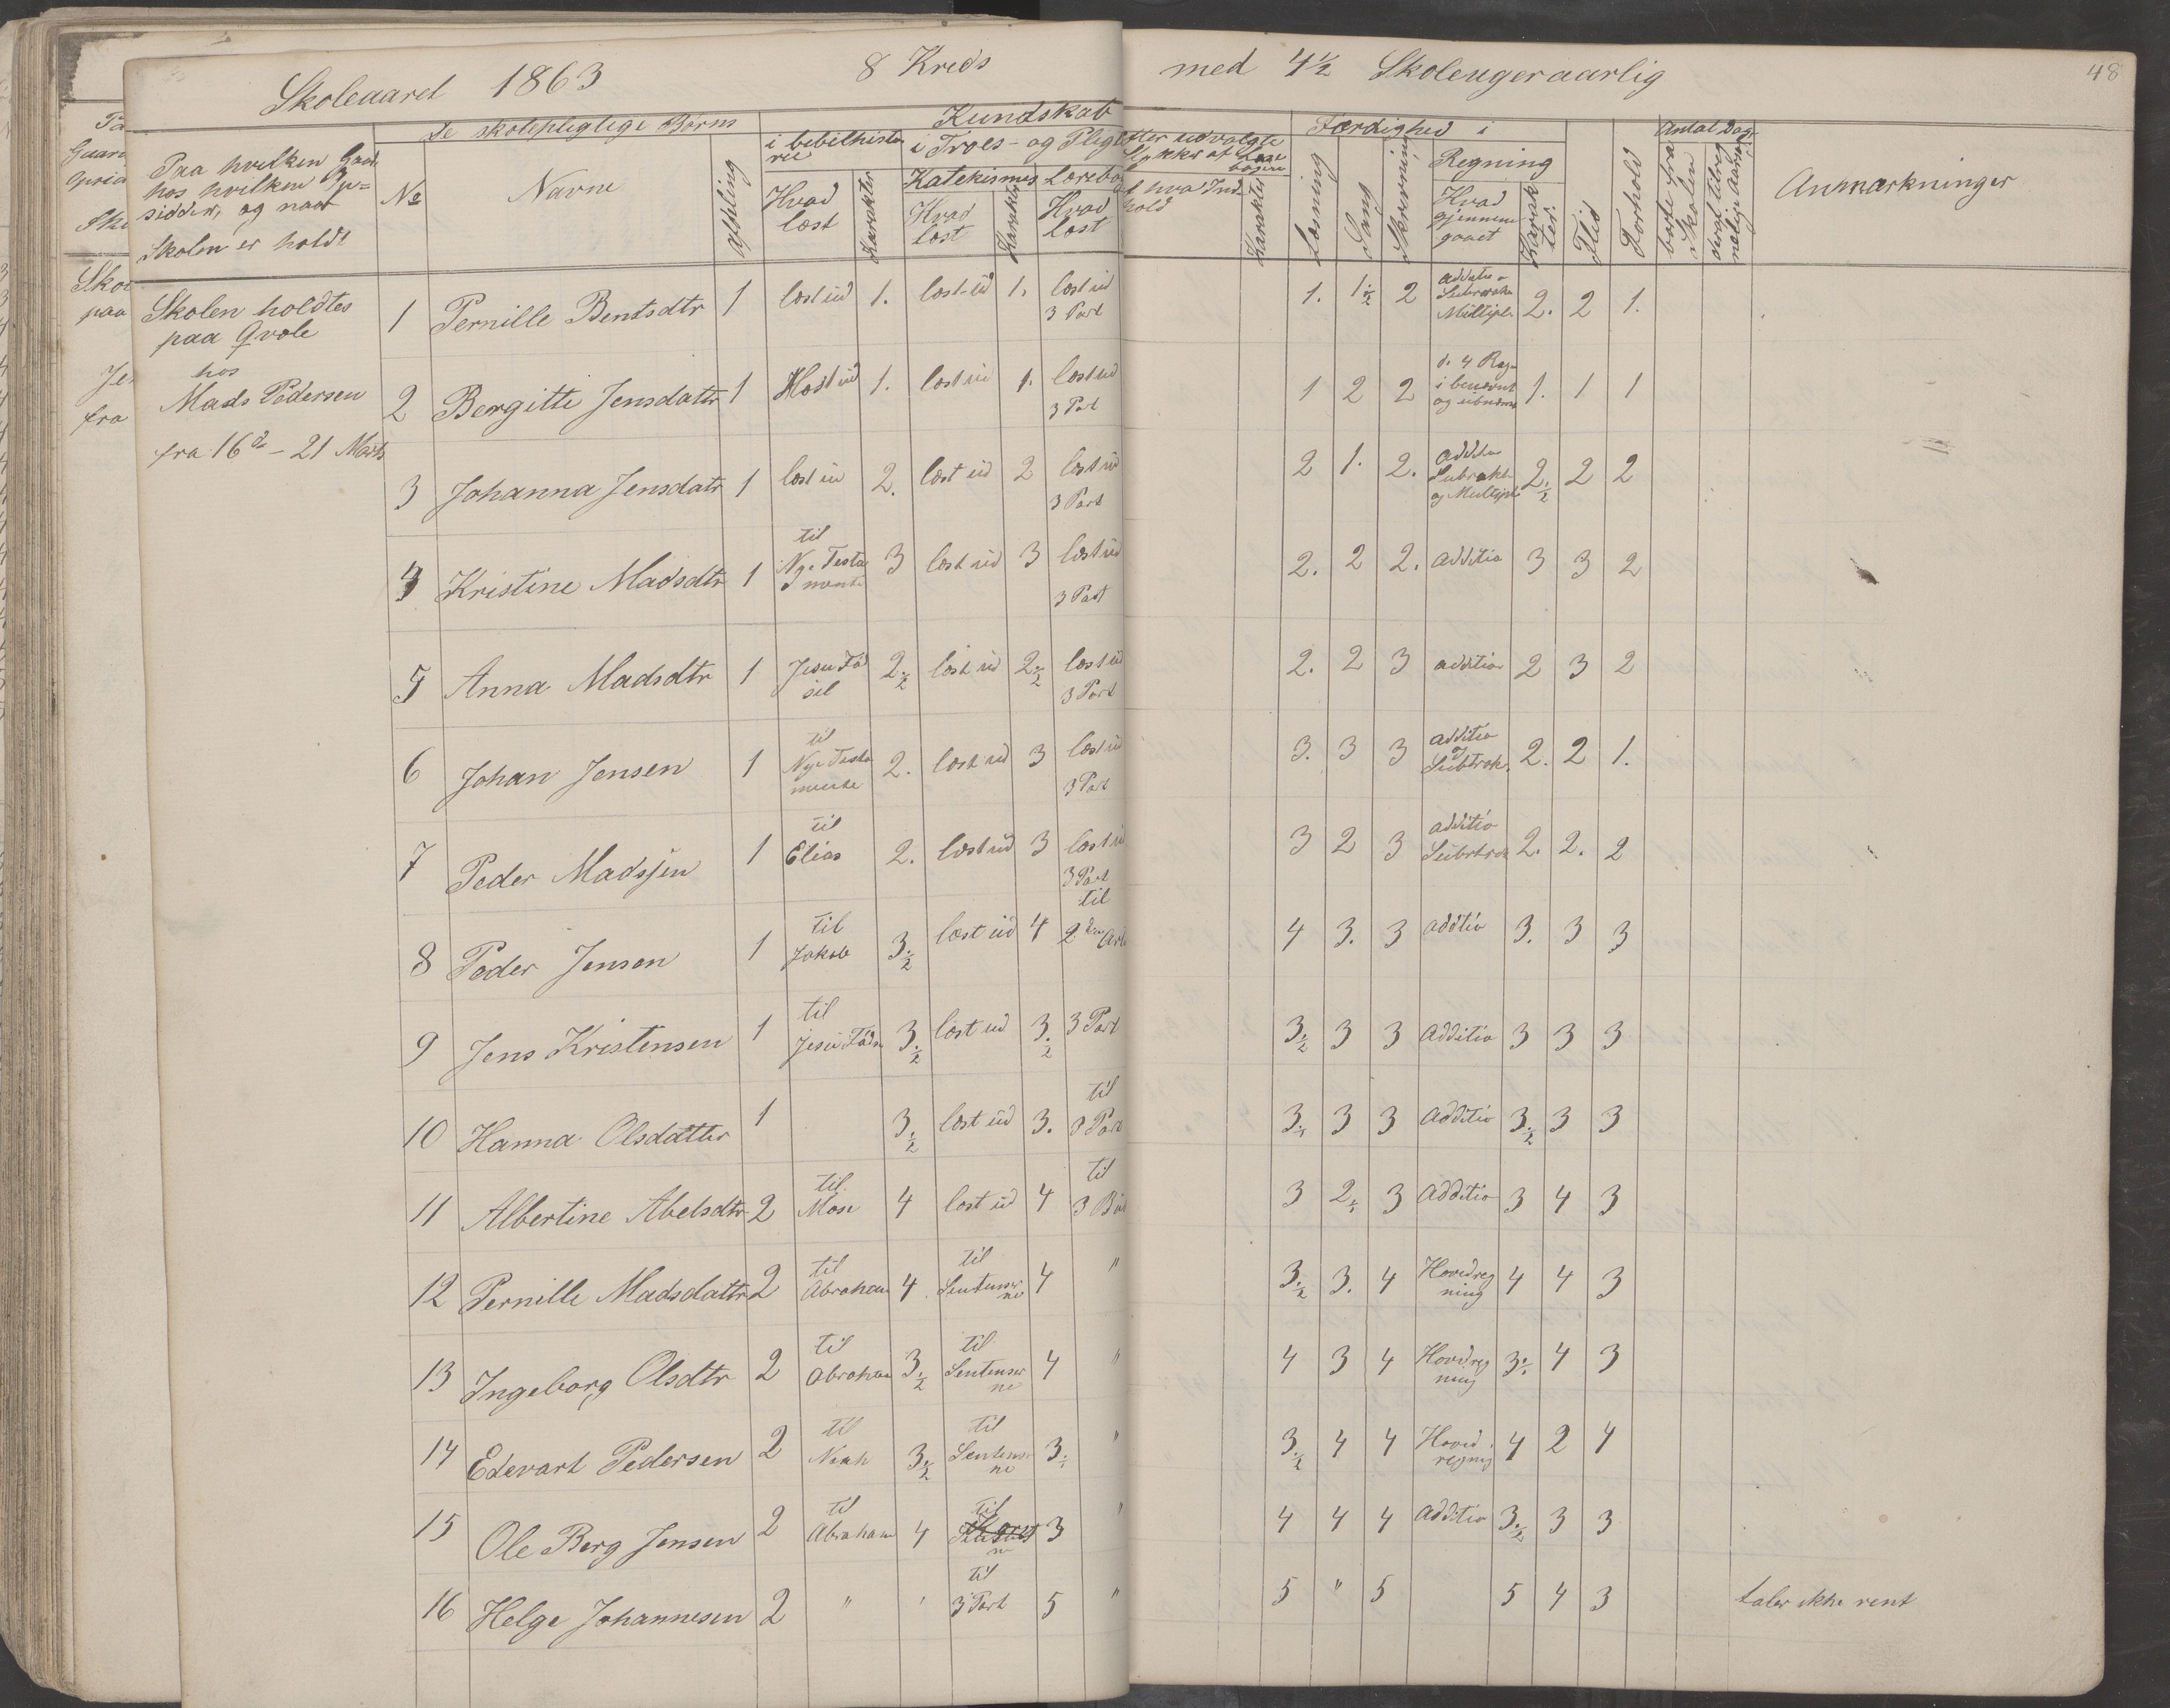 Skoleaaret 1863 8 Kreds med 4½ Skoleuger aarlig
48
Paa hvilken Gaard
hos hvilken Op=
sidder, og naar
Skolen er holdt
De skolepligtige Børns
No
Navne
Afdeling
Kundskab
i bibelhisto
rie
Hvad
læst
Karakter
i Troes- og Pligt
Katekismus
Hvad
læst
Karakter
Lærebo
Hvad
læst
Karakter
Færdighed i
Læsning
Sang
Skrivning
Regning
Hvad
gjennem
gaaet
Karak
ter.
Flid
Forhold
Antal Dage
borte fra
Skolen
Anmærkninger
Skolen holdtes
paa Qvole
hos
Mads Pedersen
fra 16de – 21 Marts
1 Pernille Bentsdtr 1 læst ud 1. læst ud 1. læst ud 3 Part 1. 1½ 2 additio Subtrak Multipl. 2. 2 1.
2 Bergitte Jensdatr 1 læst ud 1. læst ud 1. læst ud 3 Part 1 2 2 d. 4 Reg. i benevnt og ubnevnt 1. 1 1
3 Johanna Jensdatr 1 læst ud 2. læst ud 2 læst ud 3 Part 2 1. 2. additio Subrakt og Multipl 2.½ 2 2
4 Kristine Madsdtr 1 til Nye Testa mente 3 læst ud 3 læst ud 3 Part 2. 2 2. additio 3 3 2
5 Anna Madsdtr 1 Jesu Fød sel 2.½ læst ud 2.½ læst ud 3 Part 2. 2 3 additio 2 3 2
6 Johan Jensen 1 til Nye Testa mente 2. læst ud 3 læst ud 3 Part 3. 3 3 additio og Subtrak. 2. 2 1.
7 Peder Madsjen 1 til Elias 2. læst ud 3 læst ud 3 Part 3 2 3 additio Subrtrak 2. 2. 2
8 Peder Jensen 1 til Jakob 3.½ læst ud 4 til 2den Art 4 3. 3 additio 3. 3 3
9 Jens Kristensen 1 til Jesu Føds 3.½ læst ud 3.½ 3 Part 3.½ 3 3 Additio 3 3 3
10 Hanna Olsdatter 1 3.½ læst ud 3. til 3 Part 3. 3 3 Additio 3.½ 3 3
11 Albertine Abelsdtr. 2 til Mose 4 læst ud 4 til 3 3 2. 3 Additio 3 4 3
12 Pernille Madsdattr 2 til Abraham 4 til Sentenser ne 4 " 3.½ 3. 4 Hovedreg ning 4 4 3
13 Ingeborg Olsdtr 2 til Abraham 3.½ til Sentenser ne 4 " 4 3 4 Hovedreg ning 3. 4 3
14 Edevart Pedersen 2 til Noah 3.½ til Sentenser ne 3. " 3.½ 4 4 Hoved regnig 4 2 4
15 Ole Berg Jensen 2 til Abraham 4 til 3 " 4 4 4 Additio 3.½ 3 3
16 Helge Johannesen 2 " ' til 3 Part 5 " 5 " 5 5 4 3 taler ikke rent